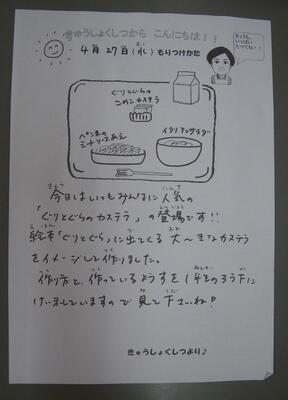 きゅうしょくしつから こんにちは！！
4月27日(水) もりつけかた
ぐりとぐらの
こめこカステラ
ペンネの
ミートソースあえ
イタリアンサラダ
今日はいつもみんなに人気の
「ぐりとぐらのカステラ」の登場です!!
絵本「ぐりとぐら」に出てくる 大〜きなカステラ
をイメージして作りました。
作り方と、作っているようすを1年生のろう下に
けいじしていますので見て下さいね♪
きゅうしょくしつより♪